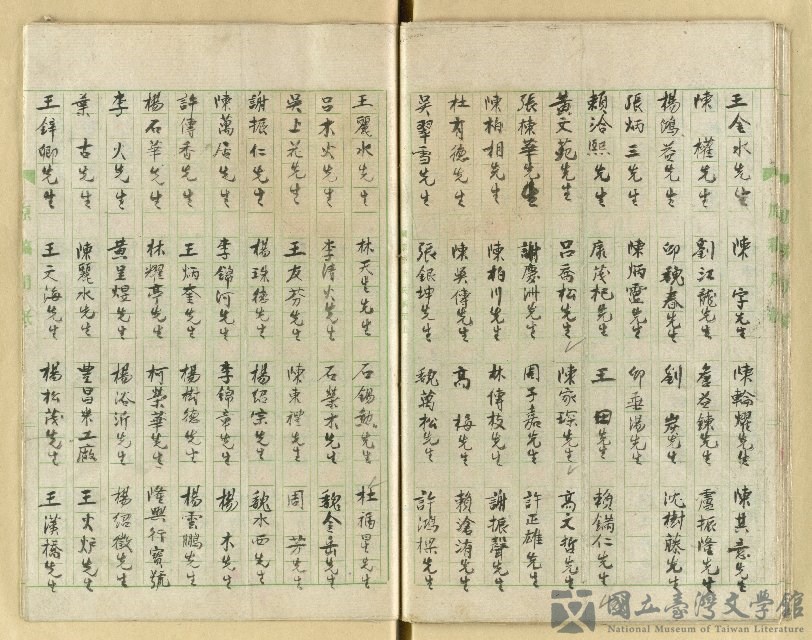 王金水先生　陳　字先生　陳輪耀先生　陳其意先生
陳　權先生　劉江龍先生　詹益鍊先生　盧振隆先生
楊鴻益先生　卯魏春先生　劉　炭先生　沈樹藤先生
張炳三先生　陳炳靈先生　卯垂湯先生
賴洽熙先生　康茂杞先生　王　田先生　賴鏞仁先生
黃文苑先生　呂喬松先生　陳家琛先生　高文哲先生
張棟華先生　謝慶洲先生　周子嘉先生　許正雄先生
陳柏相先生　陳柏川先生　林傳枝先生　謝振聲先生
杜有德先生　陳吳傳先生　高　梅先生　賴滄洧先生
吳翠雪先生　張銀坤先生　魏萬松先生　許鴻樑先生
王麗水先生　林天生先生　石錫勳先生　杜福星先生
呂木火先生　李清火先生　石榮木先生　魏金岳先生
吳上花先生　王友芬先生　陳東禮先生　周　芳先生
謝振仁先生　楊珠德先生　楊紹宗先生　魏水西先生
陳萬居先生　李錦河先生　李錦章先生　楊　木先生
許傳香先生　王炳奎先生　楊樹德先生　楊雲鵬先生
楊石華先生　林耀亭先生　柯榮華先生　隆興行寶號
李　火先生　黃呈煜先生　楊浴沂先生　楊紹徵先生
葉　古先生　陳麗水先生　豊昌米工廠　王火炉先生
王鋅卿先生　王文海先生　楊松茂先生　王漢橋先生
國立臺灣文學館
National Museum of Taiwan Literature